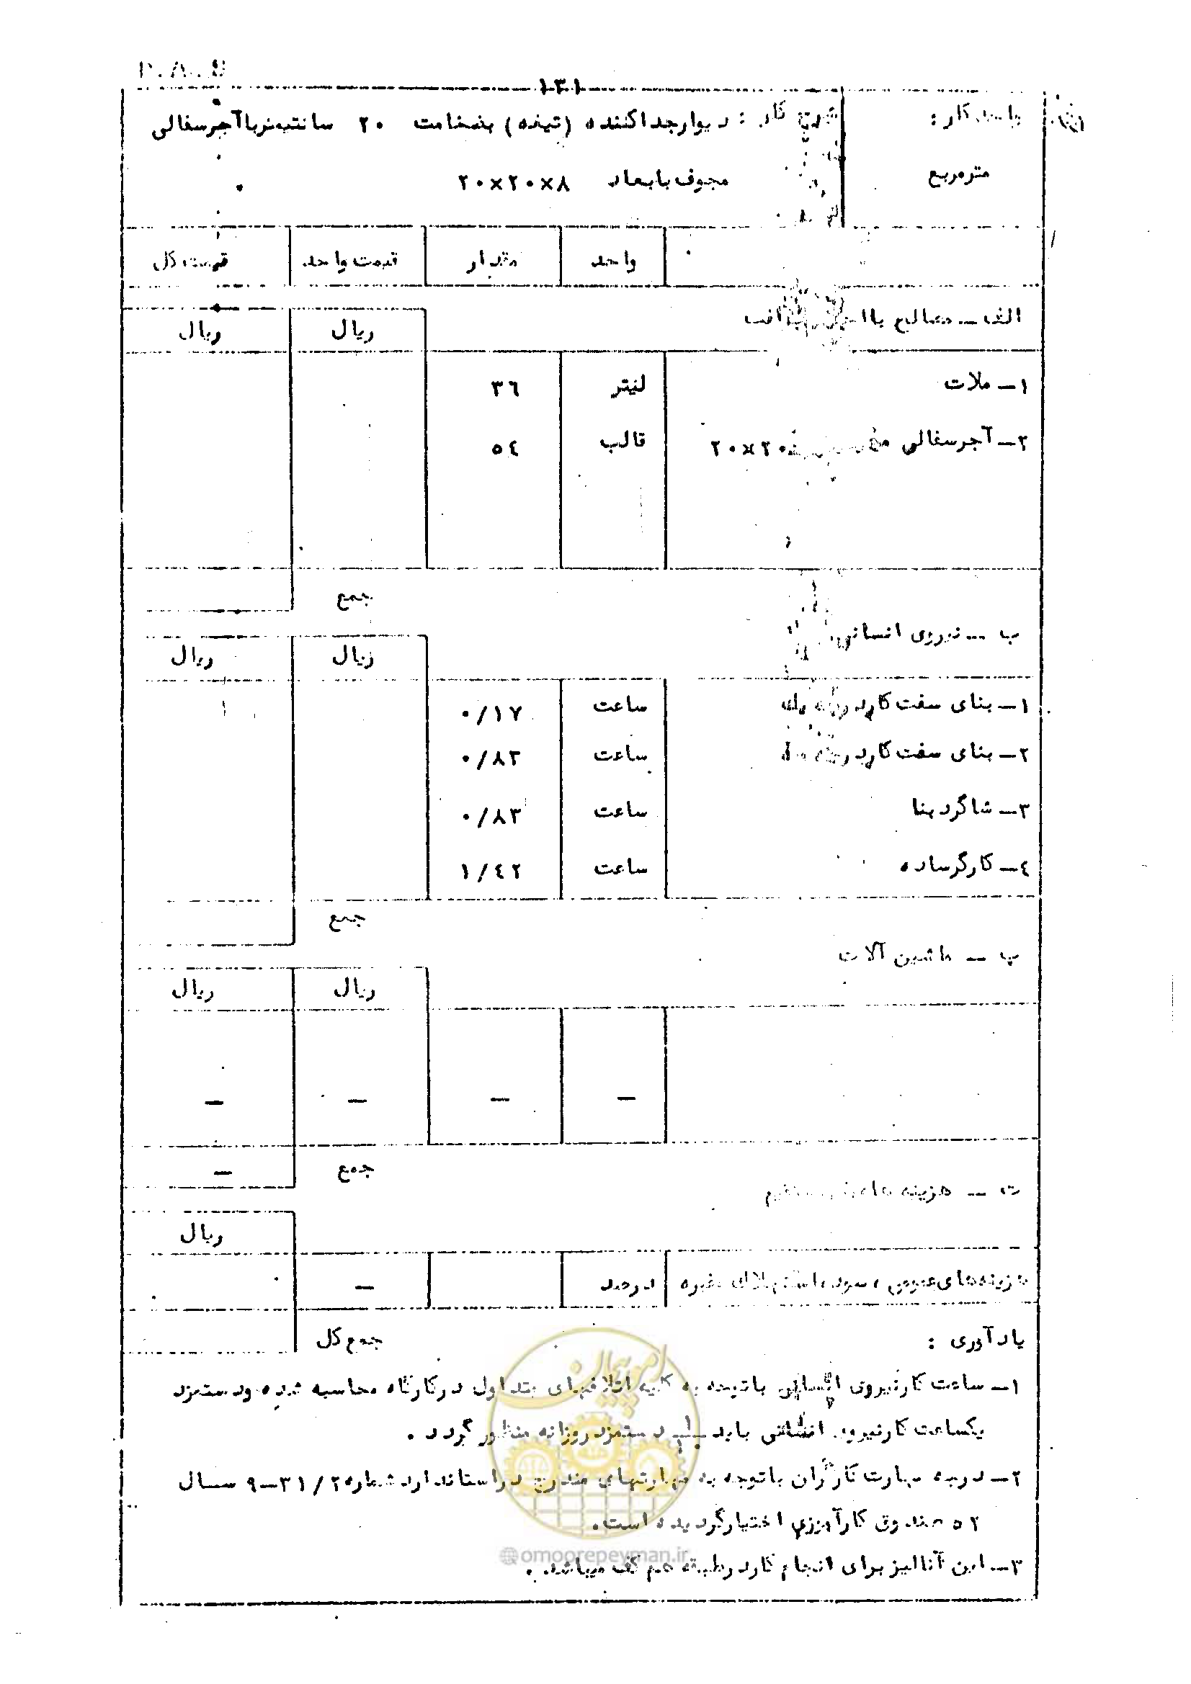 ۱۳۱
واحد کار :
شرح کار : دیوار جداکننده (تیغه) بضخامت ۲۰ سانتیمتر با آجر سفالی
مترمربع
مجوف بابعاد ۸×۲۰×۲۰
واحد مقدار قیمت واحد قیمت کل
الف – مصالح با
ریال ریال
۱– ملات لیتر ۳۶
۲– آجرسفالی ۲۰×۲۰ قالب ۵٤
جمع
ب – نیروی انسانی
ریال ریال
۱– بنای سفت کار درجه یك ساعت ۰/۱۷
۲– بنای سفت کار درجه ساعت ۰/۸۳
۳– شاگرد بنا ساعت ۰/۸۳
٤– کارگر ساده ساعت ۱/٤۲
جمع
پ – ماشین آلات
ریال ریال
– – – –
جمع –
ت – هزینه های
ریال
هزینه‌های عمومی ، سود، استهلاك وغیره درصد –
جمع کل
یادآوری :
۱– ساعت کار نیروی انسانی باتوجه به کلیه اتلافهای متداول در کارگاه محاسبه شده ودستمزد
یکساعت کار نیروی انسانی باید دستمزد روزانه منظور گردد .
۲– درجه مهارت کارگران باتوجه به مهارتهای مندرج در استاندارد شماره ۲/ ۳۱–۹ سال
۵۲ صندوق کارآموزی اختیار گردیده است.
۳– این آنالیز برای انجام کار در طبقه هم کف میباشد. .
امور پیمان
@omoorepeyman.ir